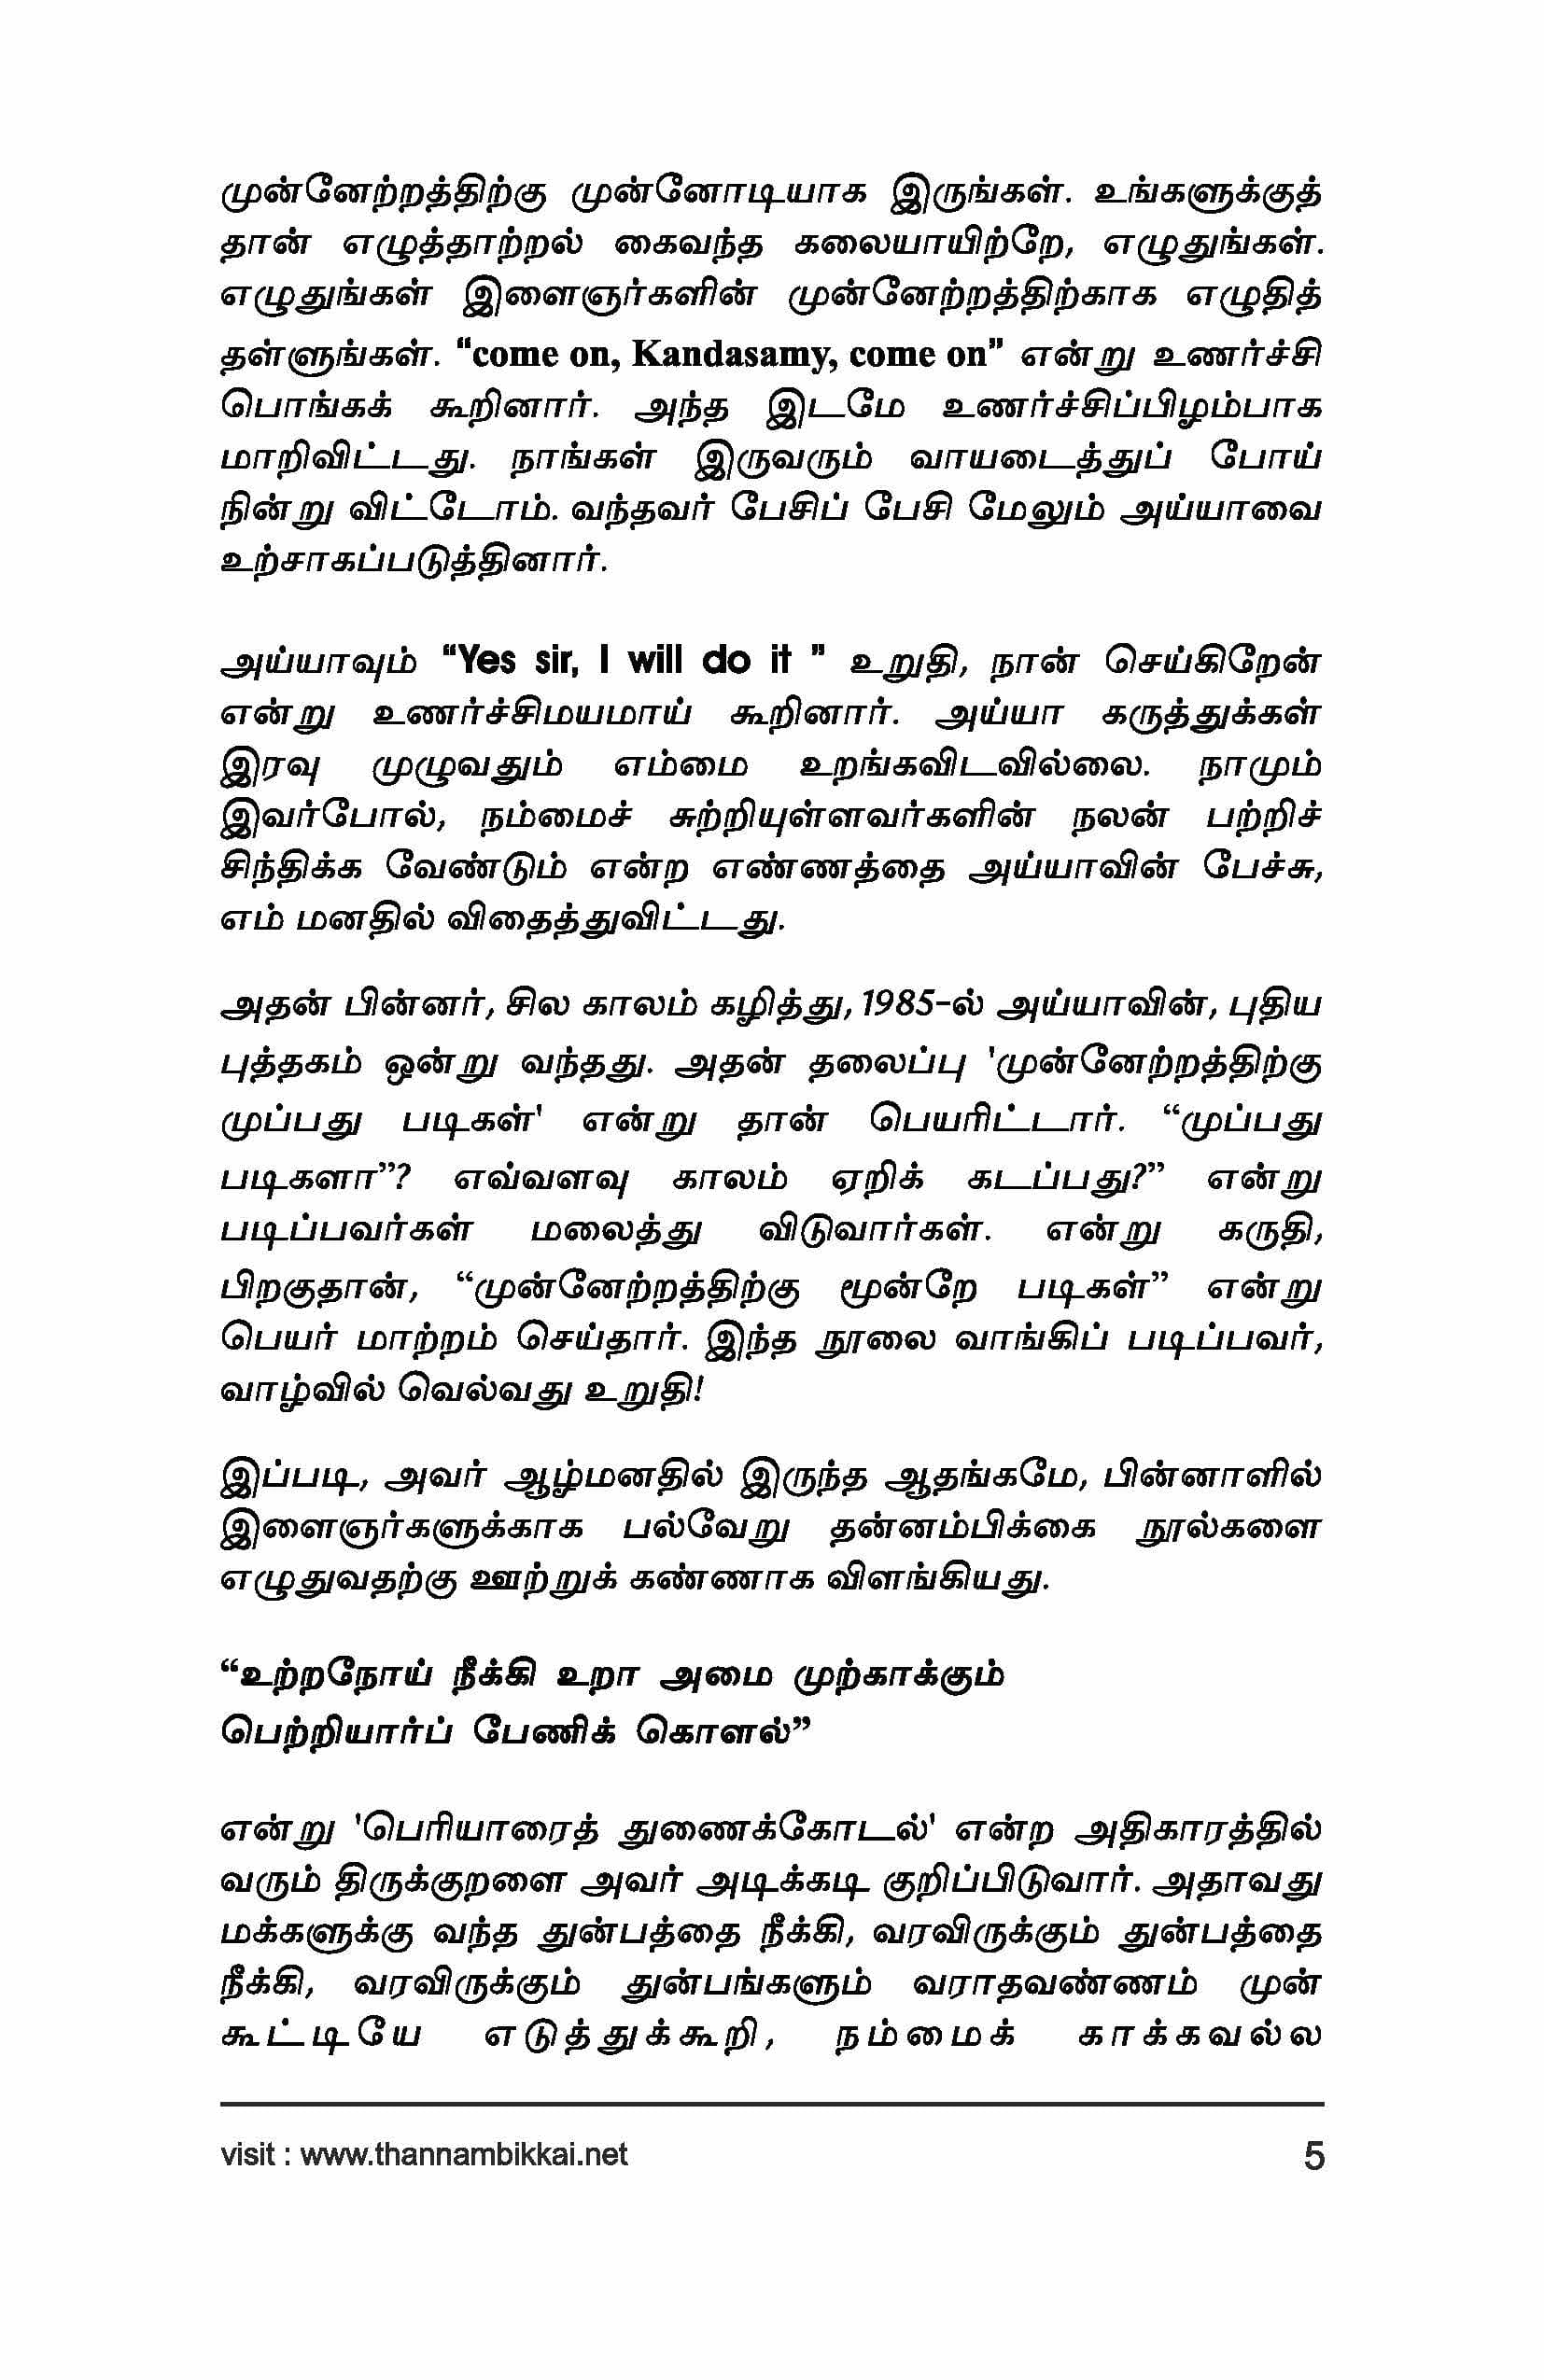 முன்னேற்றத்திற்கு முன்னோடியாக இருங்கள். உங்களுக்குத்
தான் எழுத்தாற்றல் கைவந்த கலையாயிற்றே, எழுதுங்கள்.
எழுதுங்கள் இளைஞர்களின் முன்னேற்றத்திற்காக எழுதித்
தள்ளுங்கள். “come on, Kandasamy, come on” என்று உணர்ச்சி
பொங்கக் கூறினார். அந்த இடமே உணர்ச்சிப்பிழம்பாக
மாறிவிட்டது. நாங்கள் இருவரும் வாயடைத்துப் போய்
நின்று விட்டோம். வந்தவர் பேசிப் பேசி மேலும் அய்யாவை
உற்சாகப்படுத்தினார்.
அய்யாவும் “Yes sir, I will do it ” உறுதி, நான் செய்கிறேன்
என்று உணர்ச்சிமயமாய் கூறினார். அய்யா கருத்துக்கள்
இரவு முழுவதும் எம்மை உறங்கவிடவில்லை. நாமும்
இவர்போல், நம்மைச் சுற்றியுள்ளவர்களின் நலன் பற்றிச்
சிந்திக்க வேண்டும் என்ற எண்ணத்தை அய்யாவின் பேச்சு,
எம் மனதில் விதைத்துவிட்டது.
அதன் பின்னர், சில காலம் கழித்து, 1985-ல் அய்யாவின், புதிய
புத்தகம் ஒன்று வந்தது. அதன் தலைப்பு 'முன்னேற்றத்திற்கு
முப்பது படிகள்' என்று தான் பெயரிட்டார். “முப்பது
படிகளா”? எவ்வளவு காலம் ஏறிக் கடப்பது?” என்று
படிப்பவர்கள் மலைத்து விடுவார்கள். என்று கருதி,
பிறகுதான், “முன்னேற்றத்திற்கு மூன்றே படிகள்” என்று
பெயர் மாற்றம் செய்தார். இந்த நூலை வாங்கிப் படிப்பவர்,
வாழ்வில் வெல்வது உறுதி!
இப்படி, அவர் ஆழ்மனதில் இருந்த ஆதங்கமே, பின்னாளில்
இளைஞர்களுக்காக பல்வேறு தன்னம்பிக்கை நூல்களை
எழுதுவதற்கு ஊற்றுக் கண்ணாக விளங்கியது.
“உற்றநோய் நீக்கி உறா அமை முற்காக்கும்
பெற்றியார்ப் பேணிக் கொளல்”
என்று 'பெரியாரைத் துணைக்கோடல்' என்ற அதிகாரத்தில்
வரும் திருக்குறளை அவர் அடிக்கடி குறிப்பிடுவார். அதாவது
மக்களுக்கு வந்த துன்பத்தை நீக்கி, வரவிருக்கும் துன்பத்தை
நீக்கி, வரவிருக்கும் துன்பங்களும் வராதவண்ணம் முன்
கூட்டியே எடுத்துக்கூறி, நம்மைக் காக்கவல்ல
visit : www.thannambikkai.net 5